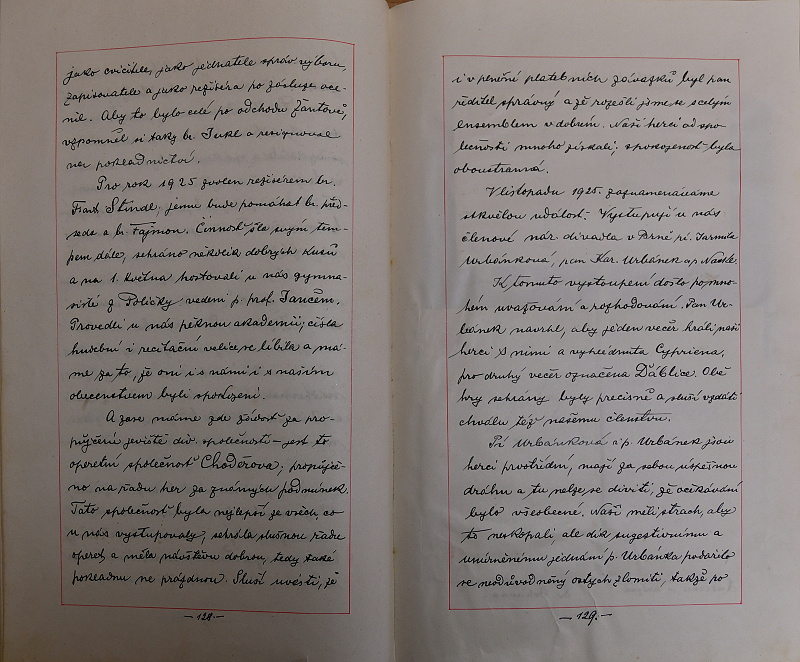 jako cvičitele, jako jednatele správ. výboru,
zapisovatele a jako režiséra po zásluze oce-
nil. Aby to bylo celé po odchodu Žantově,
vzpomněl si taky br. Jukl a resignoval
na pokladnictví.
Pro rok 1925 zvolen režisérem br.
Frant. Štindl, jemu bude pomáhat br. před-
seda a br. Fajmon. Činnost šla svým tem-
pem dále, sehráno několik dobrých kusů
a na 1. května hostovali u nás gymna-
sisté z Poličky vedeni p. prof. Jančem.
Provedli u nás pěknou akademii; čísla
hudební i recitační velice se líbila a má-
me za to, že oni i s námi i s naším
obecenstvem byli spokojeni.
A zase máme zde žádost za pro-
půjčení jeviště div. společnosti – jest to
operetní společnost Choděrova; propůjče-
no na řadu her za známých podmínek.
Tato společnost byla nejlepší ze všech, co
u nás vystupovaly, sehrála slušnou řadu
operet a měla návštěvu dobrou, tedy také
pokladnu ne prázdnou. Sluší uvésti, že
– 128. –
i v plnění platebních závazků byl pan
ředitel správný a že rozešli jsme se s celým
ensemblem v dobrém. Naši herci od spo-
lečnosti mnoho získali; spokojenost byla
oboustranná.
V listopadu 1925. zaznamenáváme
skvělou událost. Vystupují u nás
členové nár. divadla v Brně pí. Jarmila
Urbánková, pan Kar. Urbánek a p.
K tomuto vystoupení došlo po mno-
hém uvažování a rozhodování. Pan Ur-
bánek navrhl, aby jeden večer hráli naši
herci s nimi a vyhlédnuta Cyprienna,
pro druhý večer označena Ďáblice. Obě
hry sehrány byly precisně a sluší vzdáti
chválu též našemu členstvu.
Pí Urbánková i p. Urbánek jsou
herci prvotřídní, mají za sebou úspěšnou
dráhu a tu nelze se diviti, že očekávání
bylo všeobecné. Naši měli strach, aby
to neskopali, ale dík sugestivnímu a
umírněnému jednání p. Urbánka podařilo
se neodůvodněný ostych zlomiti, takže po
– 129. –